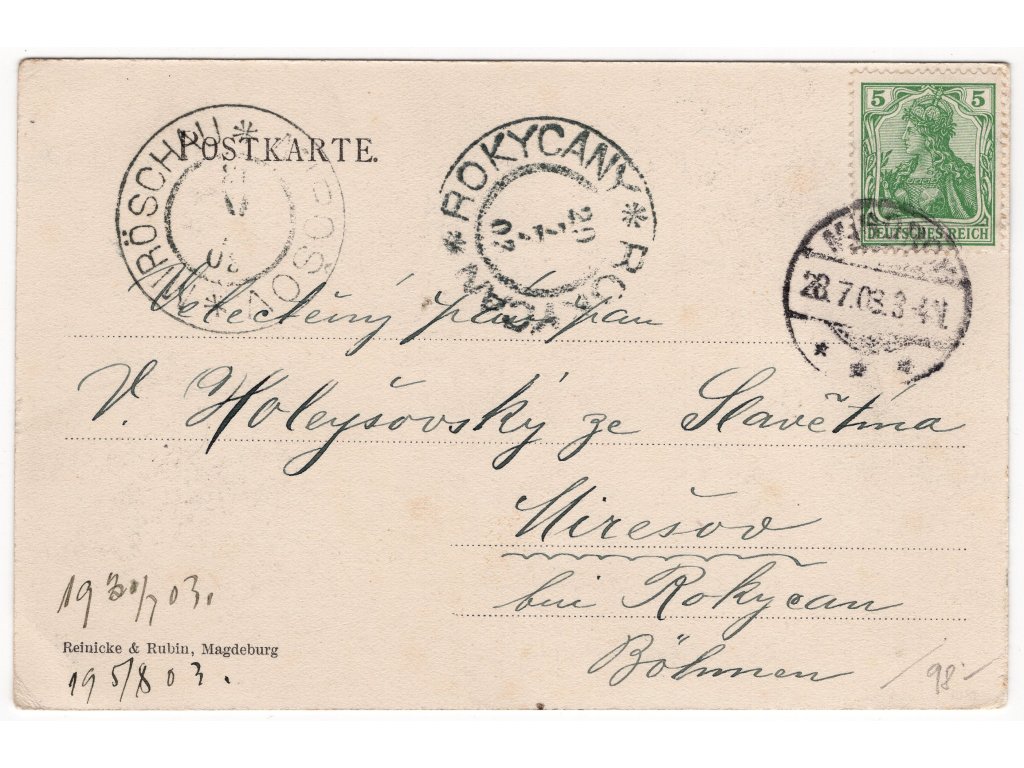 5 5
DEUTSCHES REICH
POSTKARTE.
MIRÖSCHAU * *
* ROKYCANY * ROKYCAN
28.7.03.3-4N.
* * *
Velectěný pán pan
V. Holeyšovský ze Slavětína
Mirešov
bei Rokycan
Böhmen
19 30/7 03.
Reinicke & Rubin, Magdeburg
19 5/8 03.
98.-